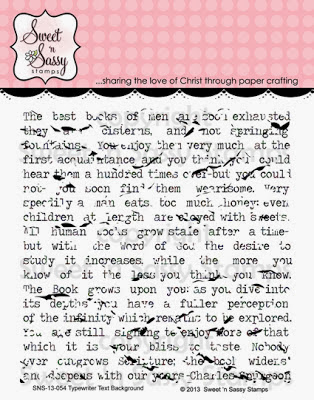 Sweet 'n
Sassy
stamps
...sharing the love of Christ through paper crafting
The best books of men are soon exhausted
they cisterns, and not springing
fountains. You enjoy them very much at the
first acquaintance and you think you could
hear them a hundred times over-but you could
not- you soon find them wearisome. Very
speedily a man eats too much honey: even
children at length are cloyed with sweets.
All human books grow stale after a time-
but with the word of God the desire to
study it increases, while the more you
know of it the less you think you know.
The Book grows upon you: as you dive into
its depths you have a fuller perception
of the infinity which remains to be explored.
You are still signing to enjoy more of that
which it is your bliss to taste. Nobody
ever outgrows Scripture; the book widens
and deepens with our years -Charles Spurgeon
SNS-13-054 Typewriter Text Background
© 2013 Sweet 'n Sassy Stamps